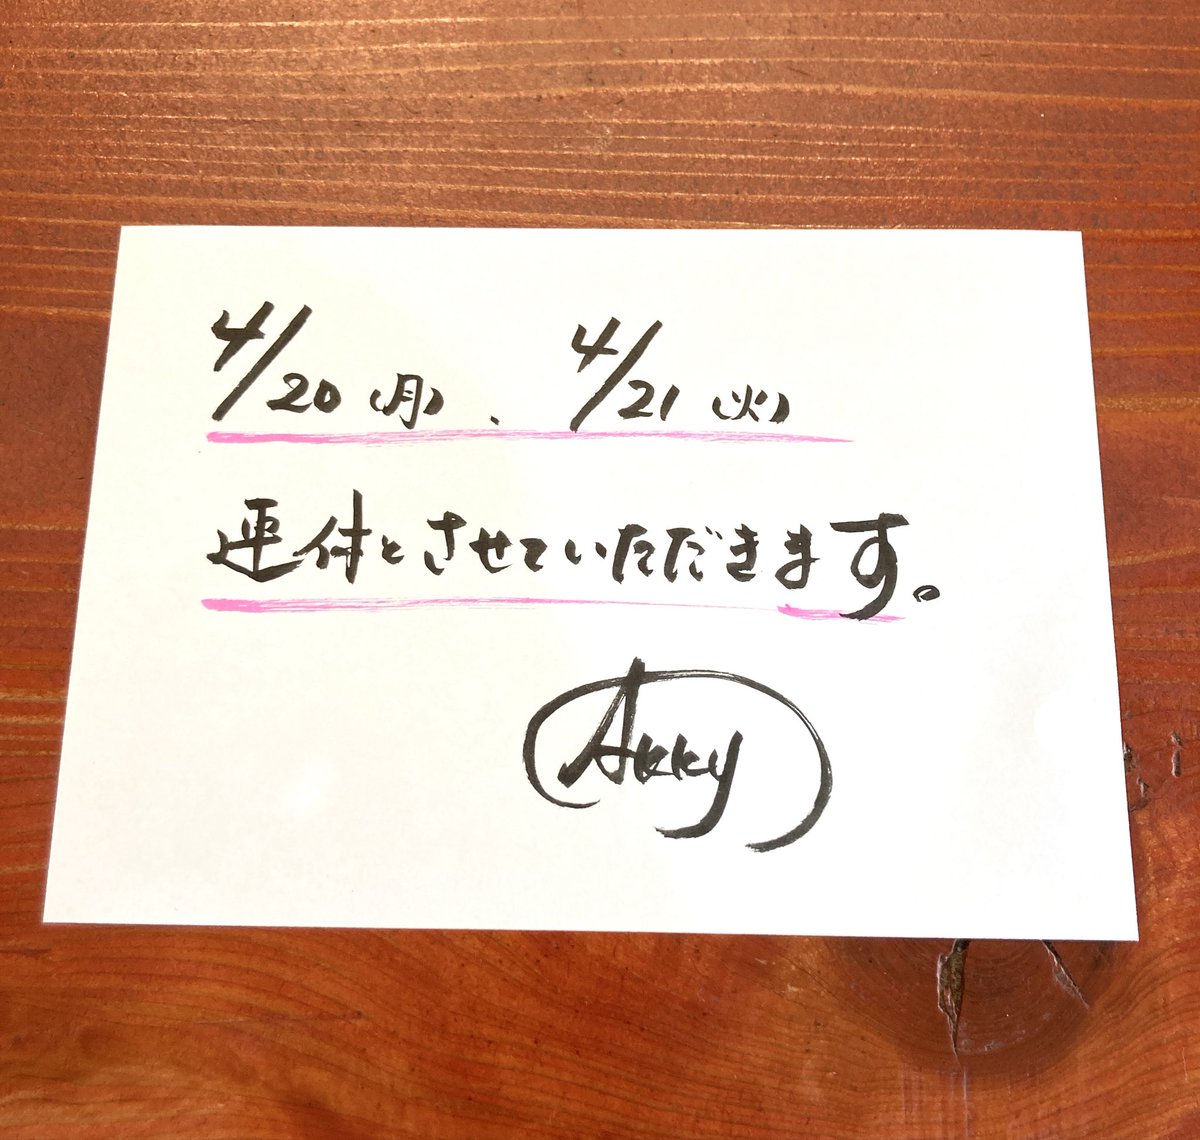 4/20(月)、4/21(火)
連休とさせていただきます。
Akky